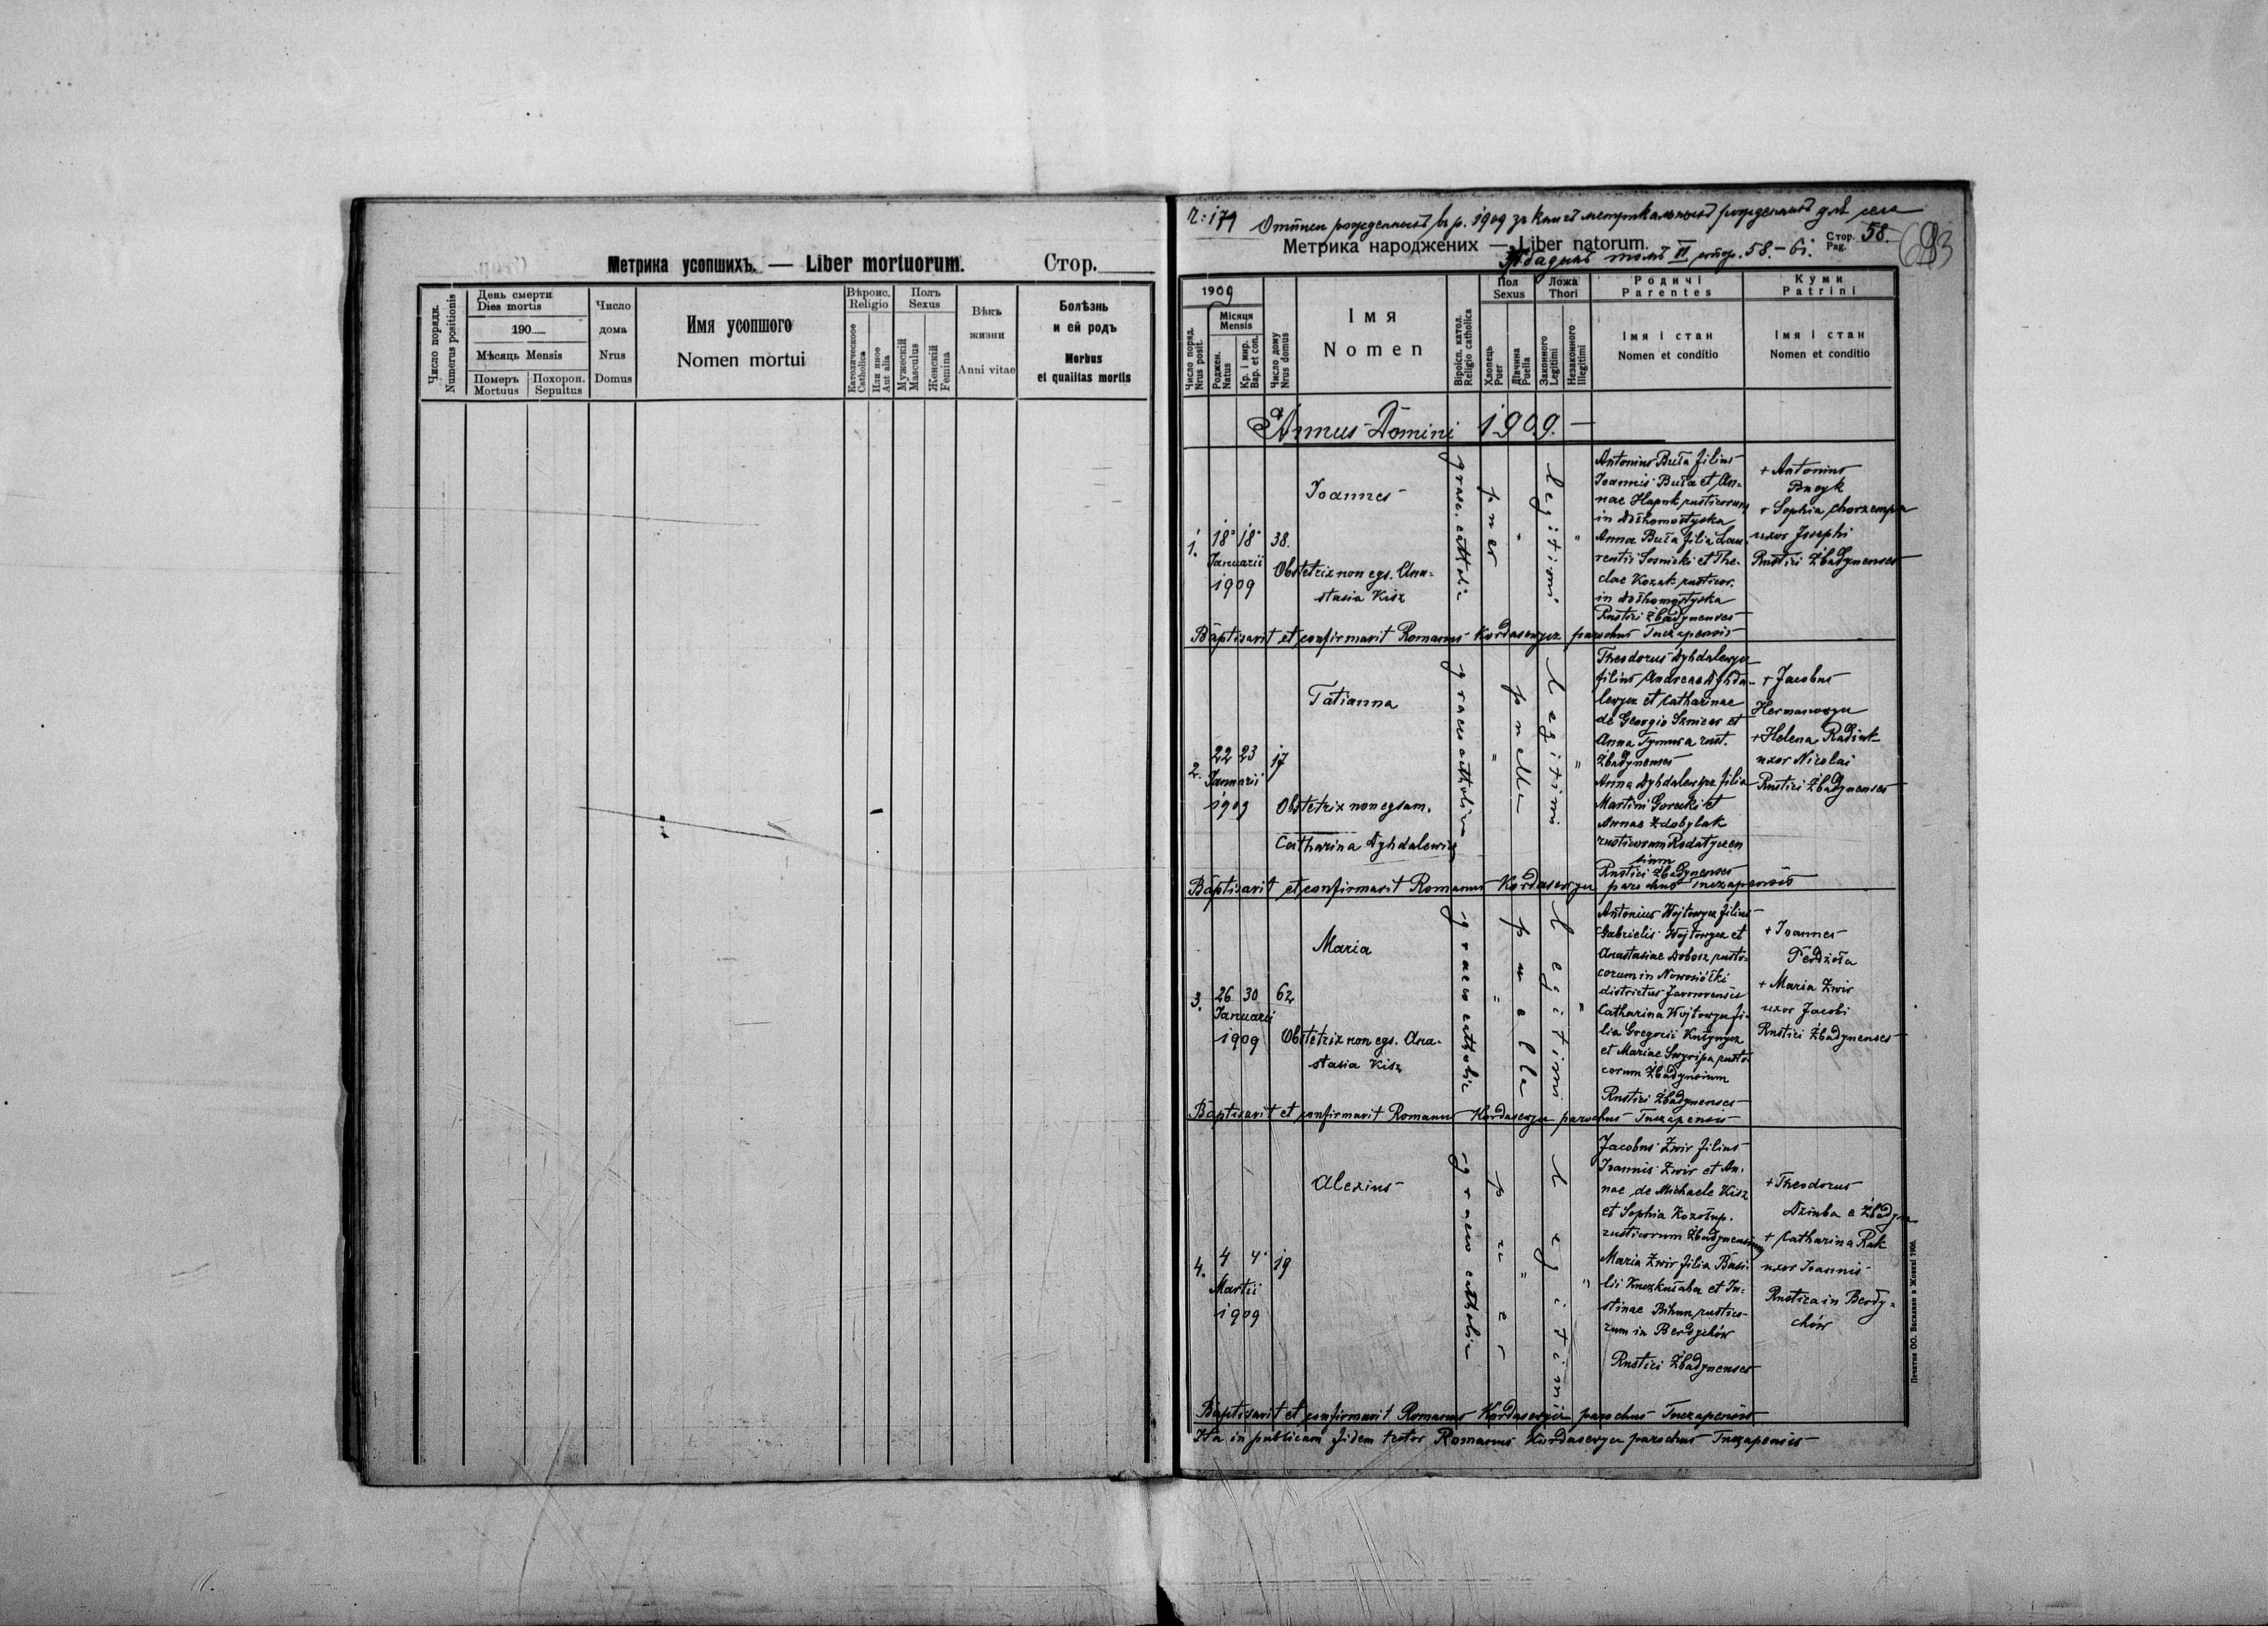 Метрика усопшихъ. — Liber mortuorum.
Стор.
Число порядк.
Numerus positionis
День смерти
Dies mortis
190
Мѣсяць Mensis
Померъ
Mortuus
Похорон.
Sepultus
Число
дома
Nrus
Domus
Имя усопшого
Nomen mortui
Вѣроис.
Religio
Католическое
Catholica
Или иное
Aut alia
Полъ
Sexus
Мужескій
Masculus
Женскій
Femina
Вѣкъ
жизни
Anni vitae
Болѣзнь
и ей родъ
Morbus
et qualitas mortis
ч: 179
рожденныхъ въ р. 1909 зъ книгъ метрикальныхъ рожденныхъ для села
Метрика народжених — Liber natorum.
Стор.
Pag.
58.
томъ VI стор. 58.-61.
1909
Число поряд.
Nrus posit.
Місяця
Mensis
Роджен.
Natus
Кр. і мир.
Bap. et con.
Число дому
Nrus domus
Імя
Nomen
Віроісп. катол.
Religio catholica
Пол
Sexus
Хлопець
Puer
Дівчина
Puella
Ложа
Thori
Законного
Legitimi
Незаконного
Illegitimi
Родичі
Parentes
Імя і стан
Nomen et conditio
Куми
Patrini
Імя і стан
Nomen et conditio
Annus Domini 1909. —
1.
18 18
Januarii
1909
38.
Joannes
Obstetrix non egs. Ana-
stasia Kisz
graec. cathólic
puer
"
legitimi
"
Antonius Buła filius
Joannis Buła et An-
nae Hapuk rusticorum
in Dołhomostyska
Anna Buła filia Lau-
rentii Sosnicki et The-
clae Kozak rusticor.
in Dołhomostyska
Rustici Żbadynenses
+ Antonius
+ Sophia Chorzempa
uxor Josephi
Rustici Żbadynenses
Baptisavit et confirmavit Romanus Kordasewycz parochus Tuczapensis
2.
22 23
Januarii
1909
17
Tatianna
Obstetrix non egsam.
Catharina Dyhdalewicz
graeco catholic
"
puella
legitimi
"
Theodorus Dyhdalewycz
filius Andreae Dyhda-
lewycz et Catharinae
de Georgio Sznicer et
Anna Tymura rust.
Żbadynenses
Anna Dyhdalewycz filia
Martini Gorecki et
Annae Zdobylak
rusticorum Rodatyczen
sium
Rustici Żbadynenses
+ Jacobus
Hermanowycz
+ Helena Radiuk
uxor Nicolai
Rustici Żbadynenses
Baptisavit et confirmavit Romanus Kordasewycz parochus Tuczapensis
3.
26 30
Januarii
1909
62
Maria
Obstetrix non egs. Ana-
stasia Kisz
graeco catholic
"
puella
legitimi
"
Antonius Wojtowycz filius
Gabrielis Wojtowycz et
Anastasiae Dobosz rusti-
corum in Nowosiółki
districtus Javorovensis
Catharina Wojtowycz fi-
lia Gregorii Kułynycz
et Mariae rusti-
corum Żbadynsium
Rustici Żbadynenses
+ Joannes
Perdzioła
+ Maria Zwir
uxor Jacobi
Rustici Żbadynenses
Baptisavit et confirmavit Romanus Kordasewycz parochus Tuczapensis
4.
4 4
Martii
1909
19
Alexius
graeco catholic
puer
"
legitimi
"
Jacobus Zwir filius
Joannis Zwir et An-
nae de Michaele Kisz
et Sophia Kozołup.
rusticorum Żbadynensium
Maria Zwir filia Basi-
lii et Ju-
stinae Bihun rustico-
rum in Berdychów
Rustici Żbadynenses
+ Theodorus
Dziuba e Żbadyn
+ Catharina Rak
uxor Joannis
Rustica in Berdy-
chów
Baptisavit et confirmavit Romanus Kordasewycz parochus Tuczapensis
Ita in publicam fidem testor Romanus Kordasewycz parochus Tuczapensis
Печатня ОО. Василиян в Жовкві 1906.